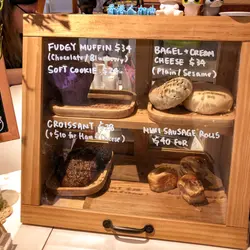 FUDGY MUFFIN $34
(Chocolate/Blueberry)
SOFT COOKIE $24
BAGEL + CREAM
CHEESE $34
(Plain / Sesame)
CROISSANT
(+$10 for Ham & Cheese)
MINI SAUSAGE ROLLS
$40 FOR